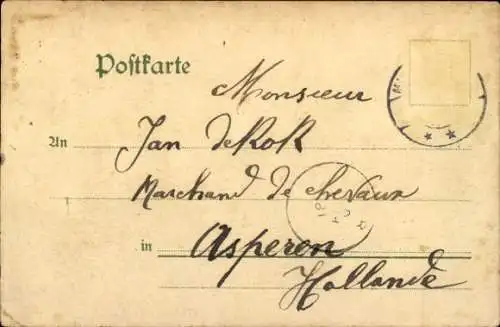 Postkarte
Monsieur
An Jan de Kok
Marchand de chevaux
in Asperen
Hollande